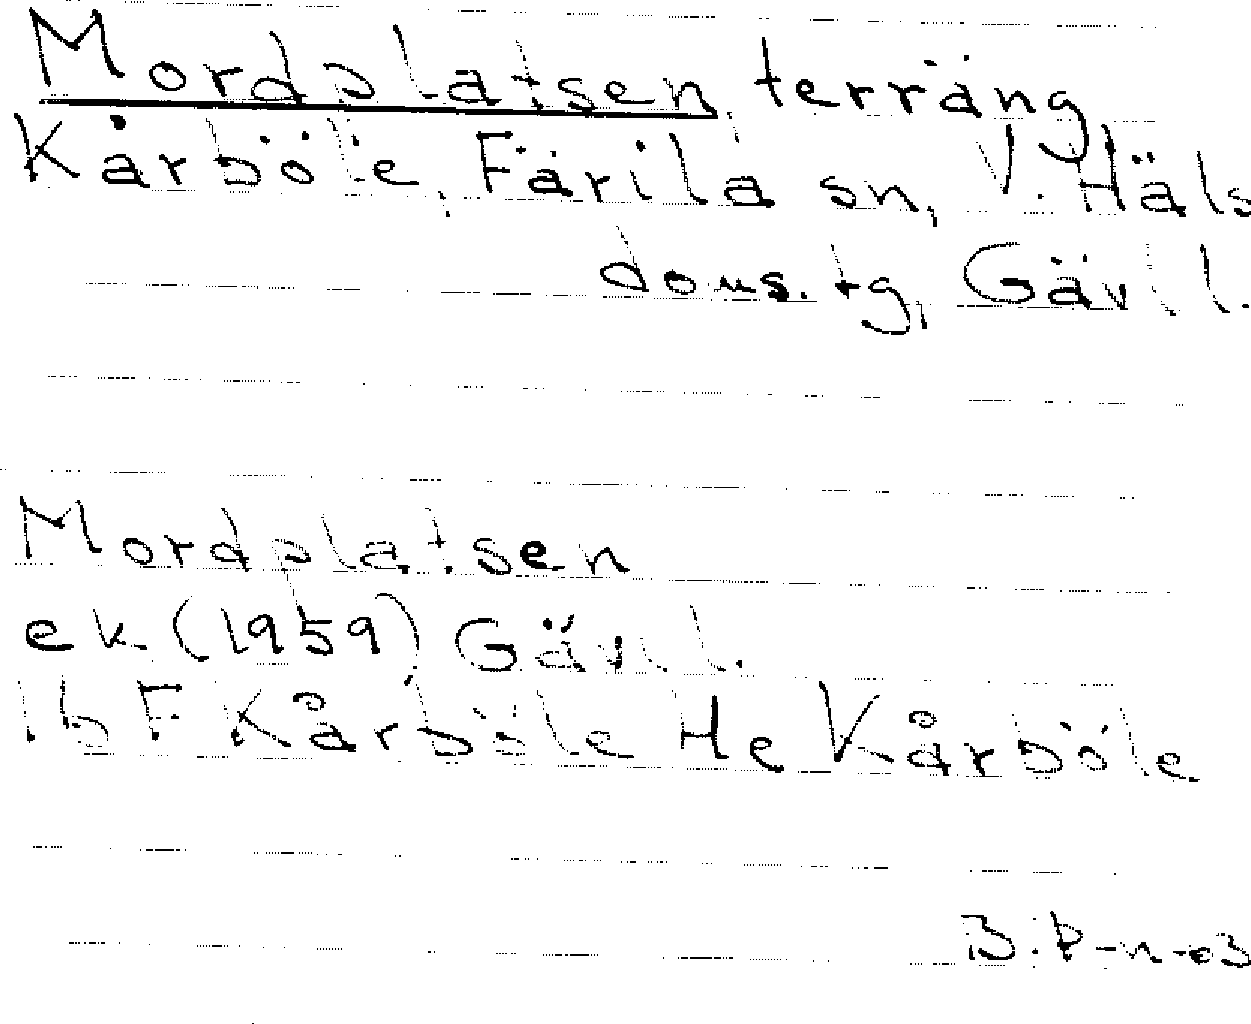 Mordplatsen, terräng
Kårböle, Färila sn, V. Häls
doms. tg, Gävl l.
Mordplatsen
ek. (1959) Gävl. l.
16 F Kårböle He Kårböle